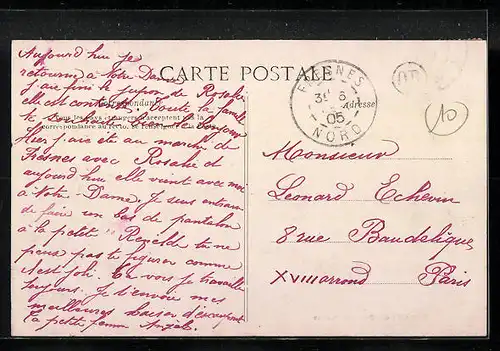 Aujourd hui je
retourn à Notre Dame
J'ai fini le jupon de Rosalie
elle est contente. Toute la famille
te souhaite le bonjour
Hier j'ai été au marché de
Fresnes avec Rosalie et
aujourd hui elle vient avec moi
à Notre-Dame. Je suis entrain
de faire un bas de pantalon
à la petite Renelde tu ne
peux pas te figurer comme
c'est joli. Tu vois je travaille
toujours. Je t'envoie mes
meilleures baiser d'
ta petite femme Angèle
CARTE POSTALE
Correspondance
Tous les pays étrangers n'acceptent pas la
correspondance au recto. Se renseigner à la Poste
Adresse
FRESNES
31 8
05
NORD
10
Monsieur
Leonard Echevin
8 rue Baudelique
XVIII arrond Paris